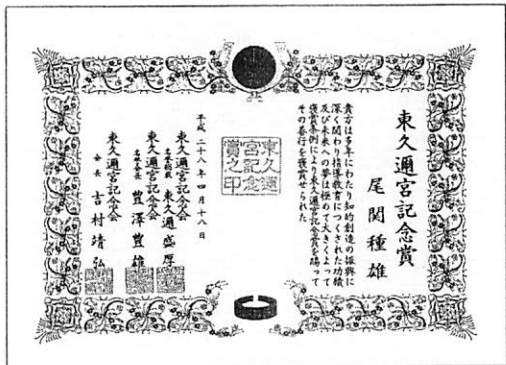 東久邇宮記念賞
尾関種雄
貴方は多年にわたり知的創造の振興に
深く関わり指導教育につくされた功績
及び未来への夢は極めて大きくよって
褒賞条例により東久邇宮記念賞を賜って
その善行を褒賞せられた
東久邇
宮記念
賞之印
平成二十八年四月十八日
東久邇宮記念会
名誉総裁 東久邇盛厚
東久邇宮記念会
名誉会長 豊澤豊雄
東久邇宮記念会
会長 吉村靖弘